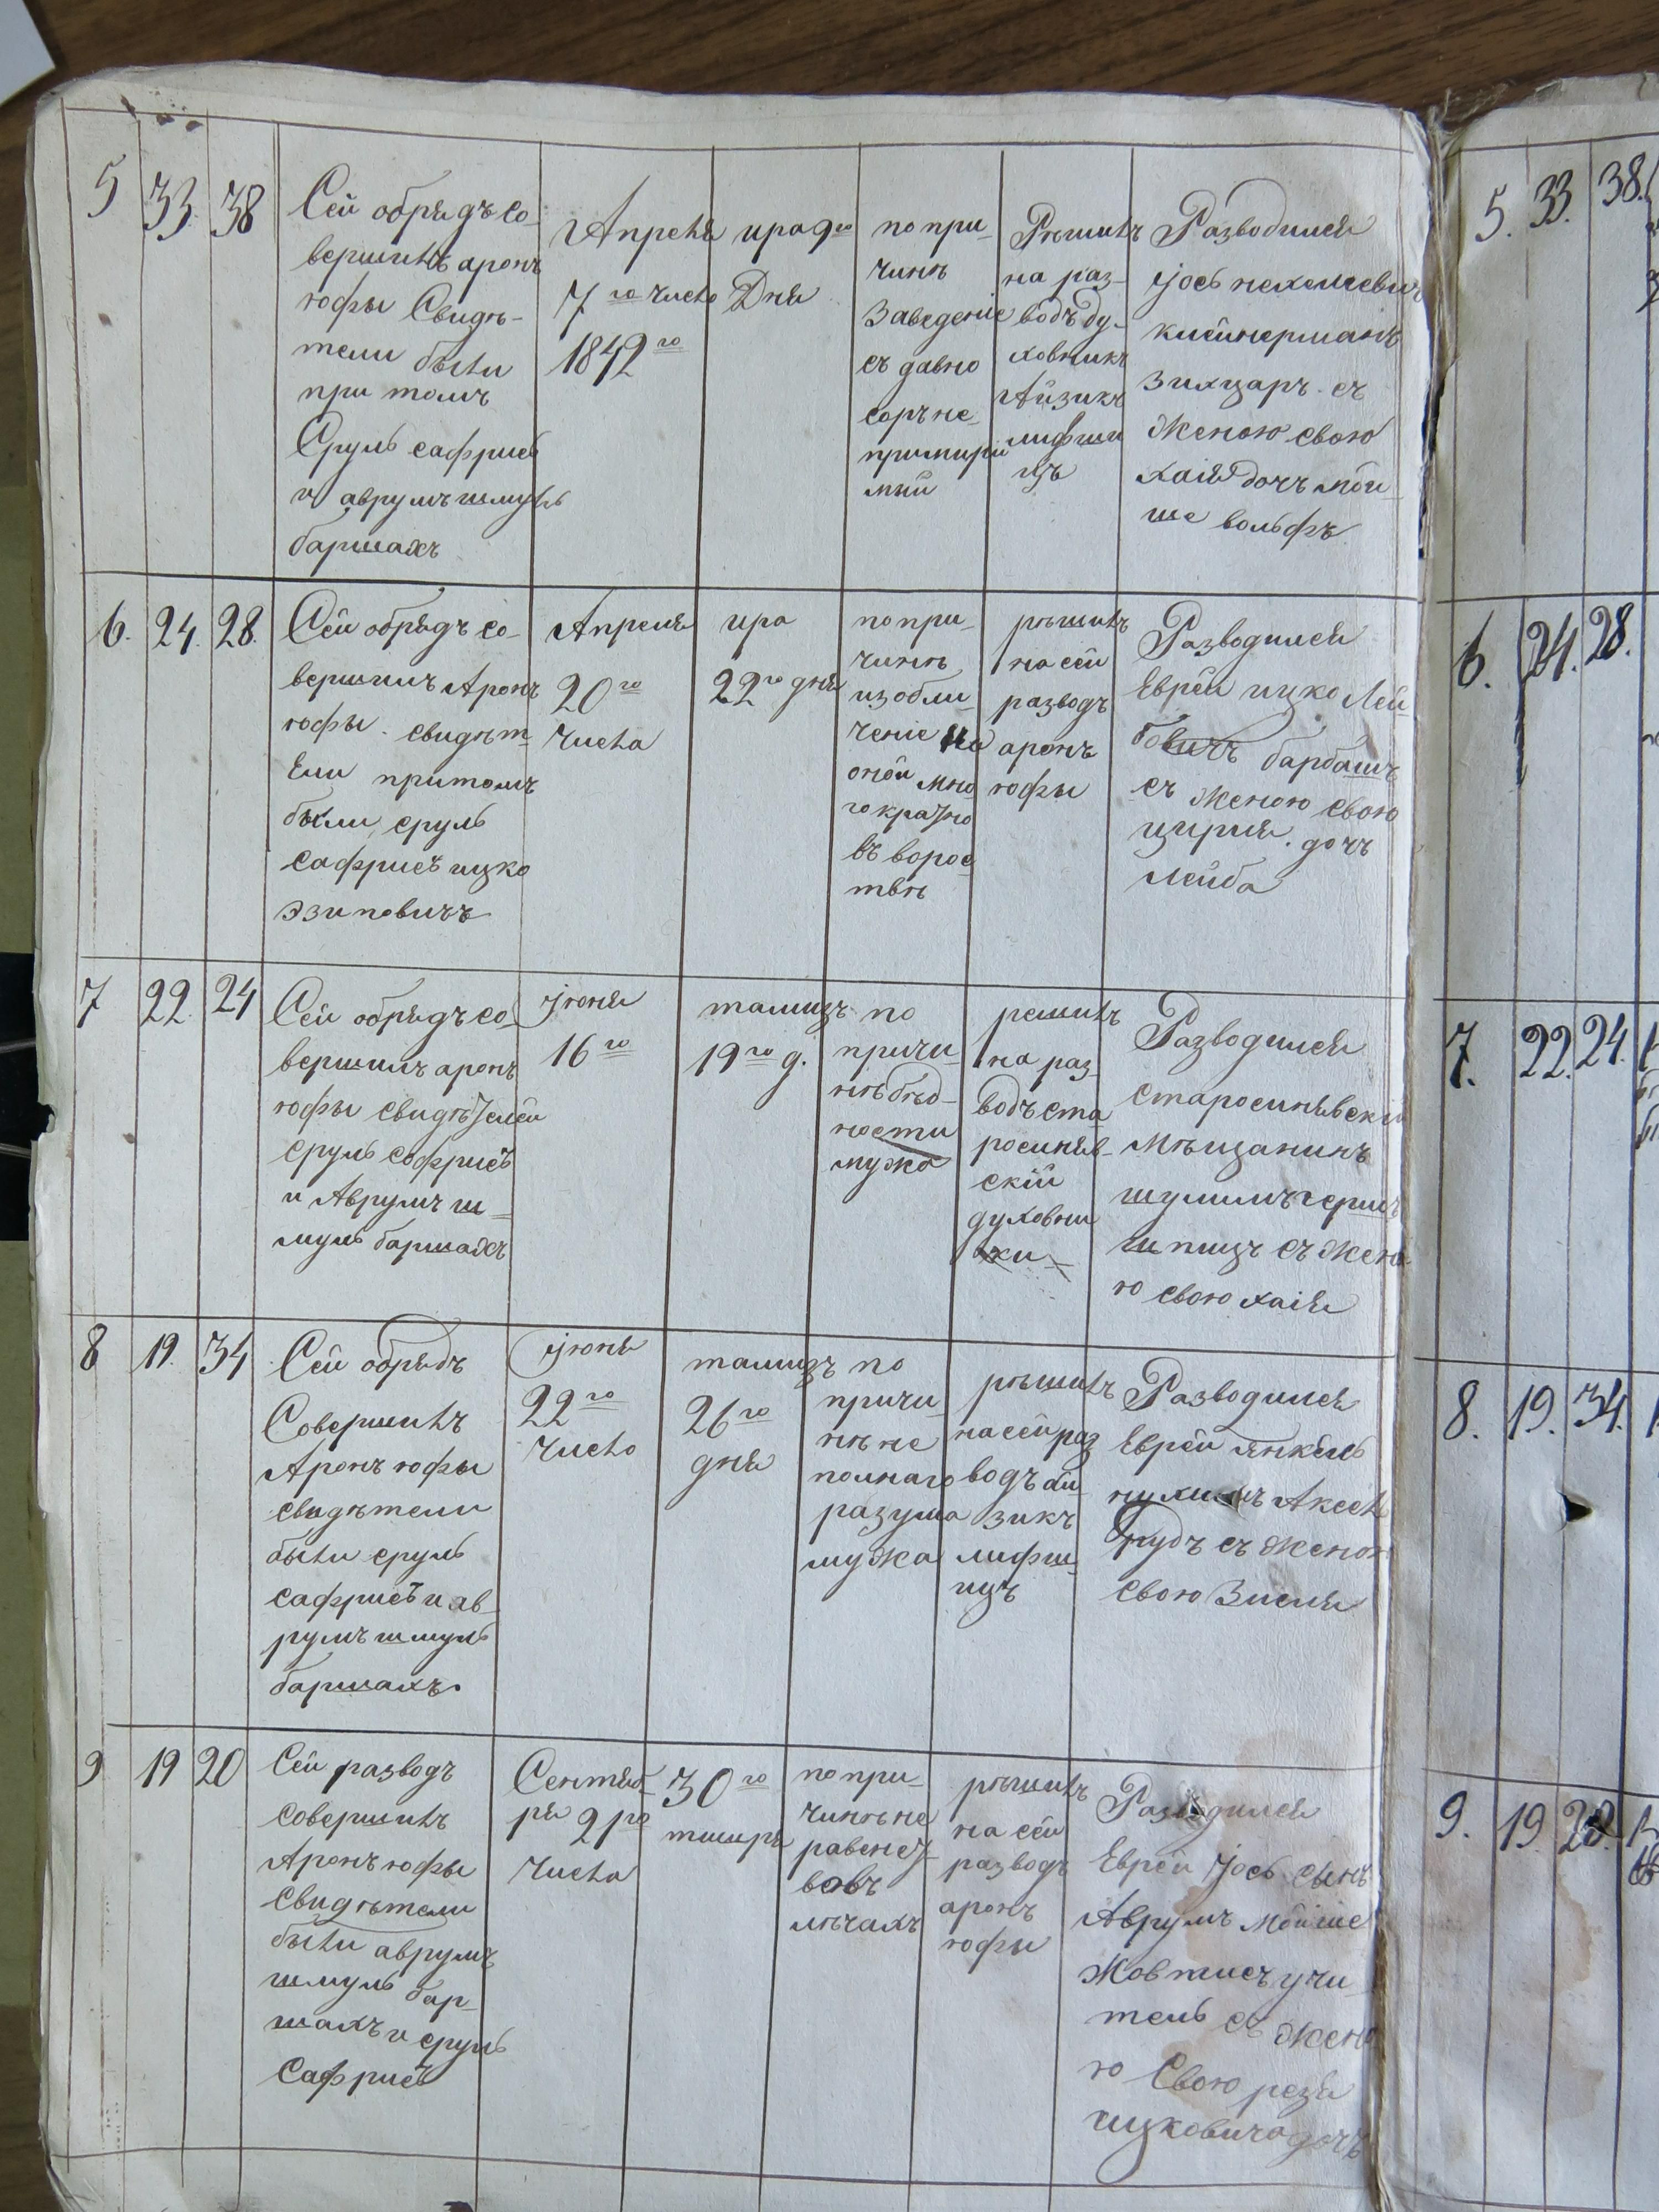 5
33.
38
Сей обрядъ со-
вершилъ аронъ
юфы Свидѣ-
тели были
при томъ
Сруль сафрисъ
и аврумъ шмуль
баршахъ
Апреля
7го числа
1842го
ира 9го
Дня
по при-
чинѣ
Заведеніе
съ давно
соръ не
примирі
мый
Рѣшилъ
на раз-
водъ ду-
ховникъ
Айзикъ
лифши
цъ
Разводился
іось
клейнерманъ
зихцаръ съ
Женою свою
хаія дочъ мой
ше вольфъ
6.
24.
28.
Сей обрядъ со-
вершилъ Аронъ
юфы свидѣт-
ели притомъ
были сруль
сафрисъ ицко
эзиповичъ
Апреля
20го
числа
ира
22го дня
по при-
чинѣ
изобли-
ченіе на
оной мно
гократно
въ ворос
твѣ
рѣшилъ
на сей
разводъ
аронъ
юфы
Разводился
Еврей ицко Лей-
бовичъ барбашъ
съ Женою свою
цирия. дочъ
Лейба
7
22
24
Сей обрядъ со-
вершилъ аронъ
юфы свидѣтелей
сруль софрисъ
и Аврумъ ш-
муль баршахъ
іюня
16го
тамизъ
19го д.
по
причи-
нѣ бѣд-
ности
мужа
решилъ
на раз-
водъ ста
росиняв-
скій
духовни
ки
Разводился
старосинявскій
мѣщанинъ
шулимъ герш
шпицъ съ Жено
ю свою хаія
8
19.
34
Сей обрядъ
Совершилъ
Аронъ юфы
свидѣтели
были сруль
сафрисъ и ав-
румъ шмуль
баршахъ.
іюня
22го
числа
тамизъ
26го
дня
по
причи-
нѣ не
полнаго
разума
мужа
рѣшилъ
на сей раз
водъ ай
зикъ
лифш-
ицъ
Разводился
Еврей янкель
Аксел
рудъ съ Женою
свою Зисля
9
19
20
Сей разводъ
совершилъ
Аронъ юфы
свидѣтели
были аврумъ
шмуль бар-
шахъ и сруль
Сафрисъ
Сентяб
ря 2го
числа
30го
тишрь
по при-
чинѣ не
равенст
вовъ
лѣтахъ
рѣшилъ
на сей
разводъ
аронъ
юфы
Разводился
Еврей іось сынъ
Аврумъ мойше
Жовтисъ учи
тель съ Жено
ю Свою рези
ицковича дочъ
5.
33.
38.
6.
24.
28.
7.
22.
24.
8.
19.
34.
9.
19.
20.